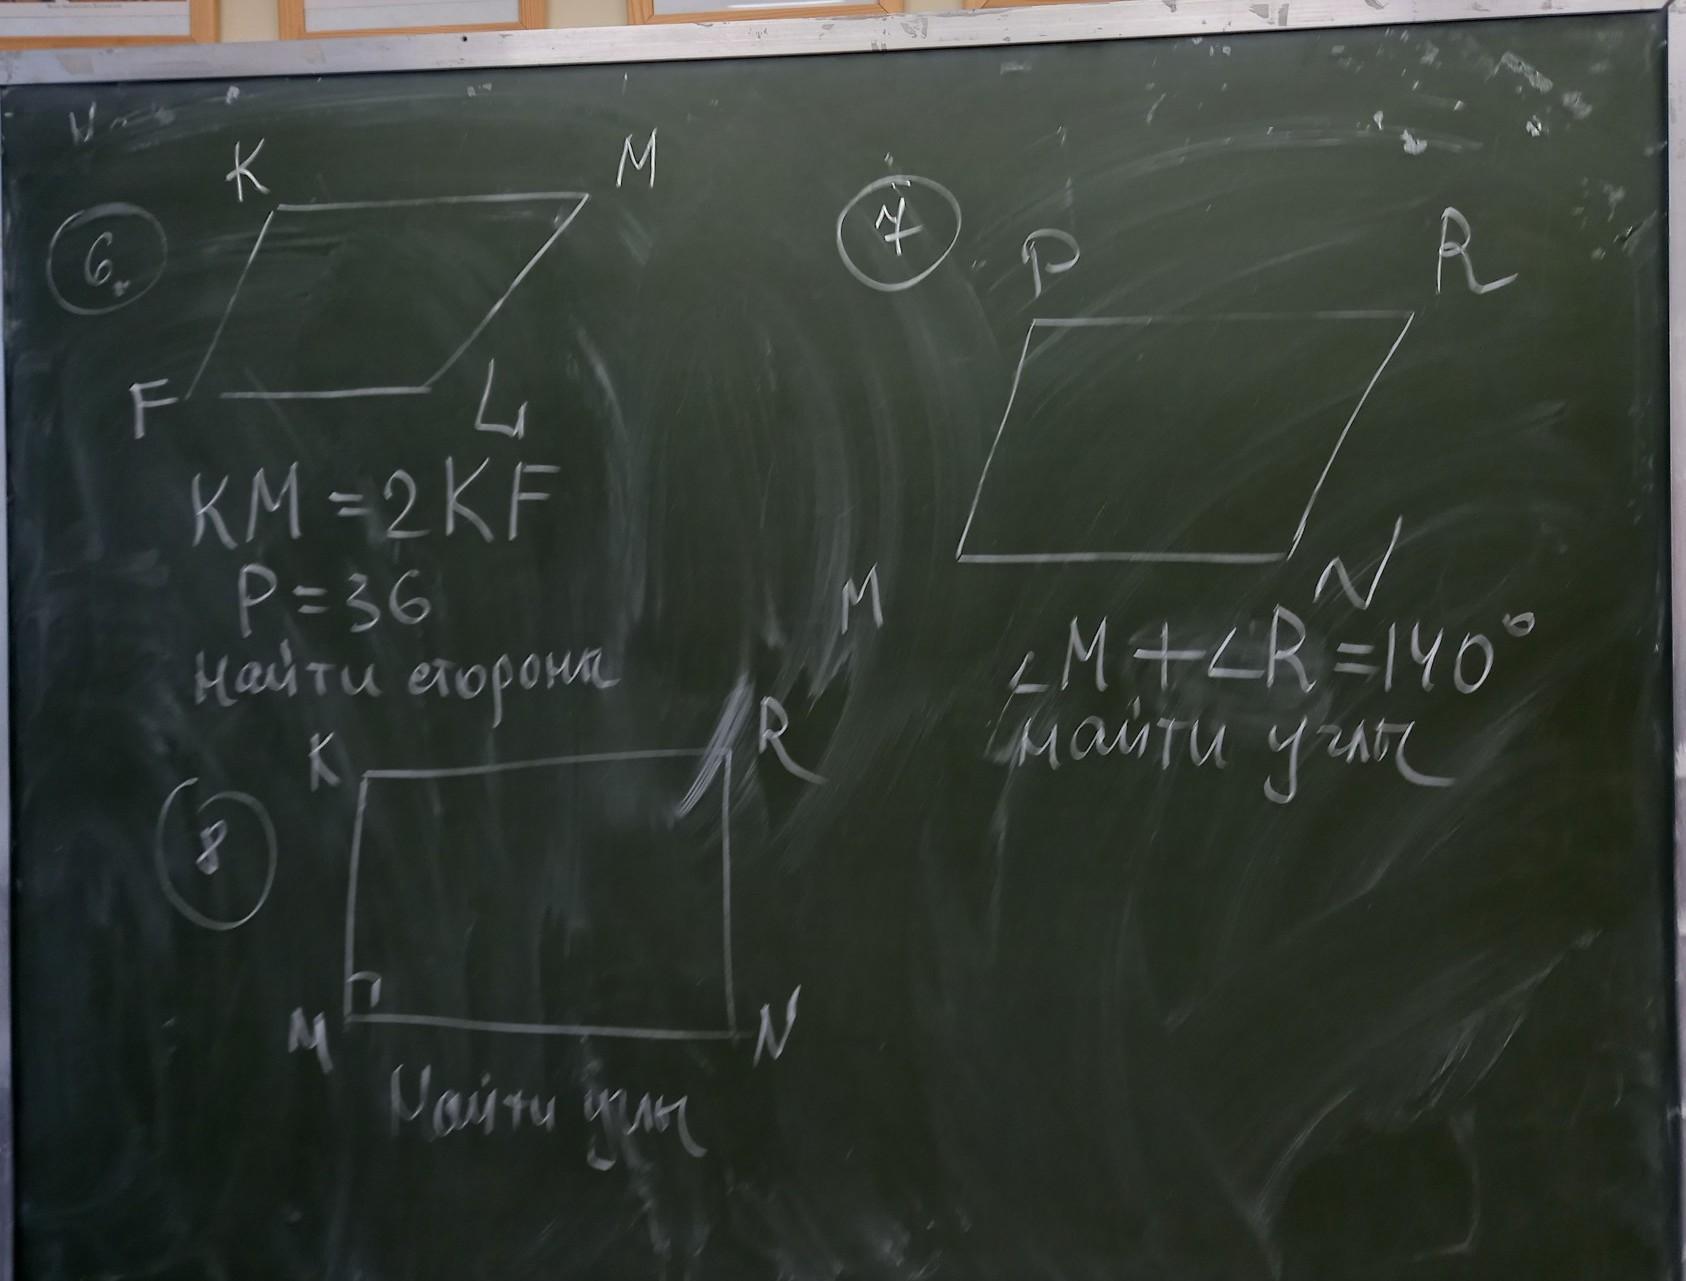 6.
K
M
F
L
KM = 2KF
P = 36
найти стороны
7
P
R
M
N
∠M + ∠R = 140°
найти углы
8
K
R
M
N
Найти углы